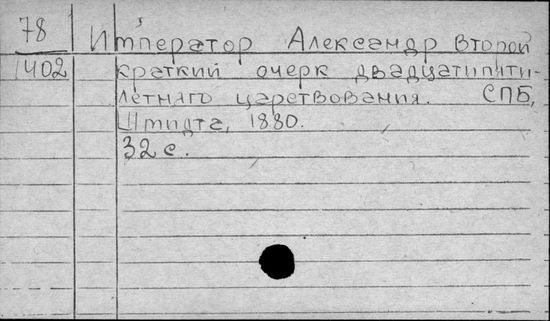 78
Император Александр Второй
1402
краткий очерк двадцатипяти-
летняго царствования. СПБ,
Шмидта, 1880.
32 с.